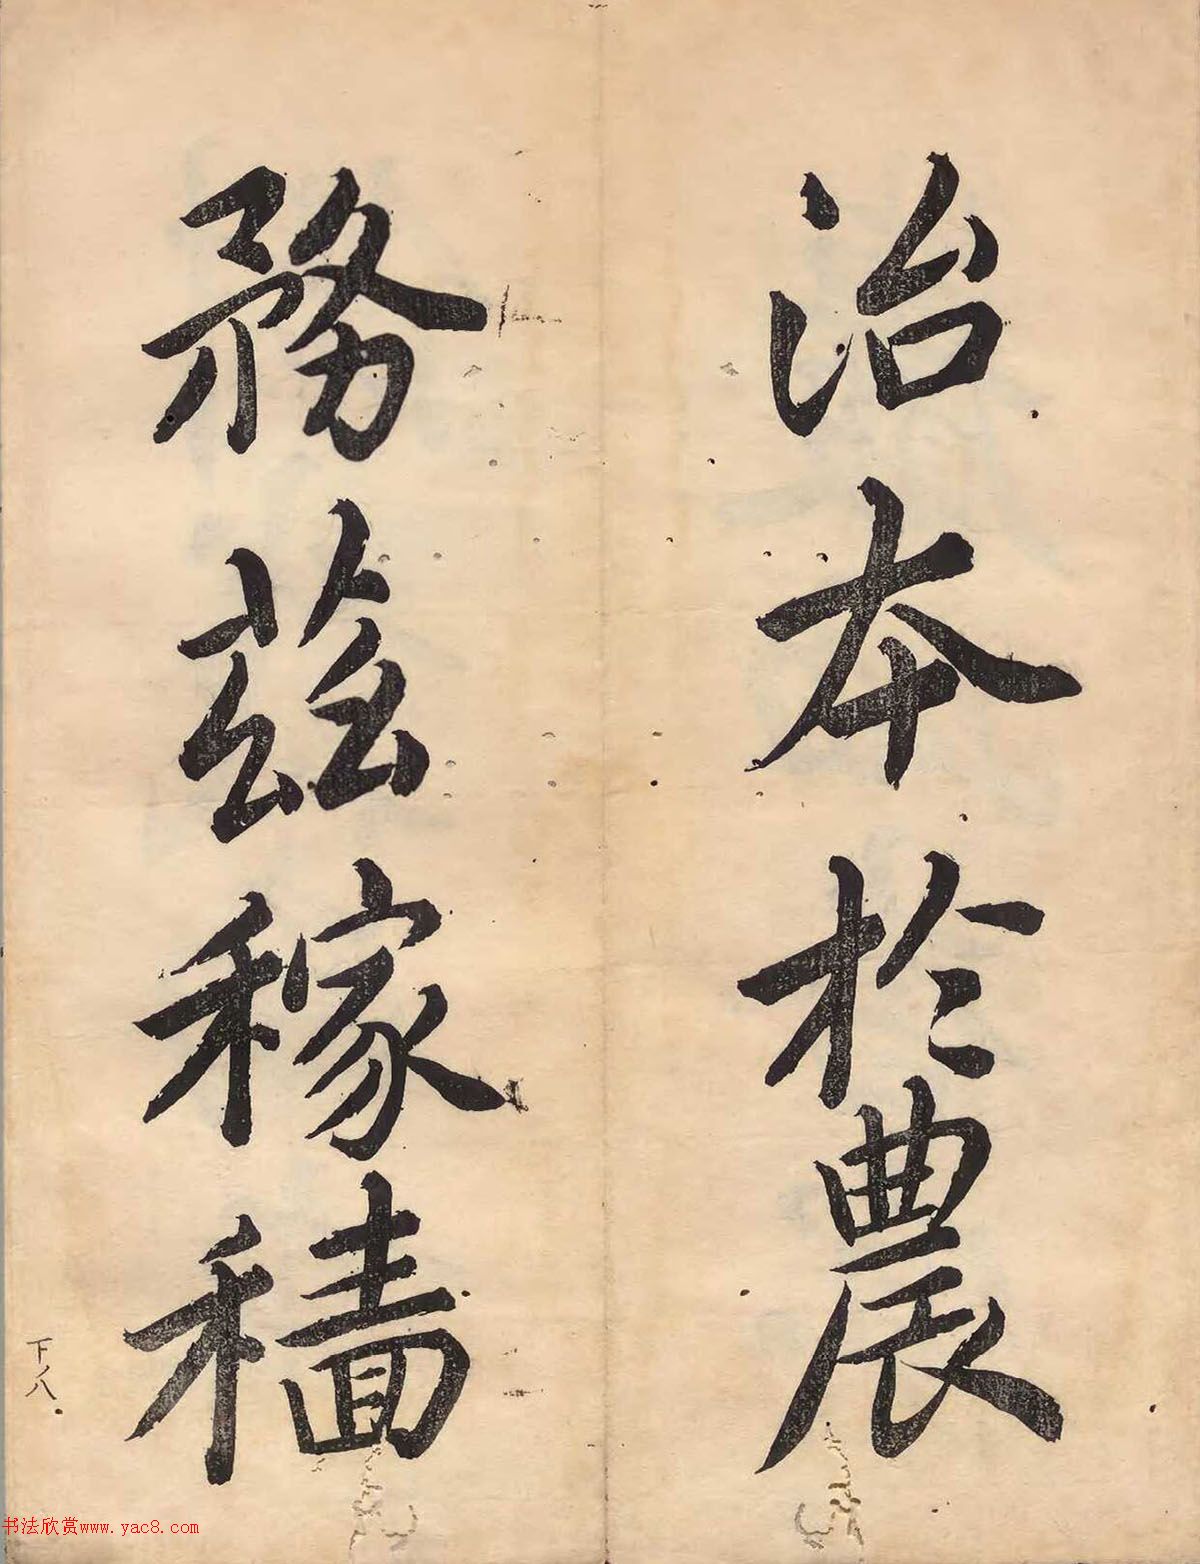 治本於農
務茲稼穡
下ノ八
书法欣赏www.yac8.com